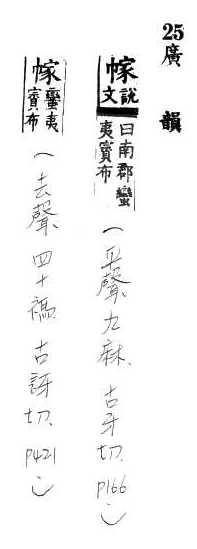 25廣 韻
幏說文曰南郡蠻夷賨布（平聲、九麻、古牙切、P166）
幏蠻夷賨布（去聲、四十禡、古訝切、P421）